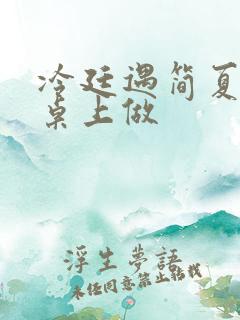 冷廷遇简夏
桌上做
浮生夢語
未经同意禁止转载